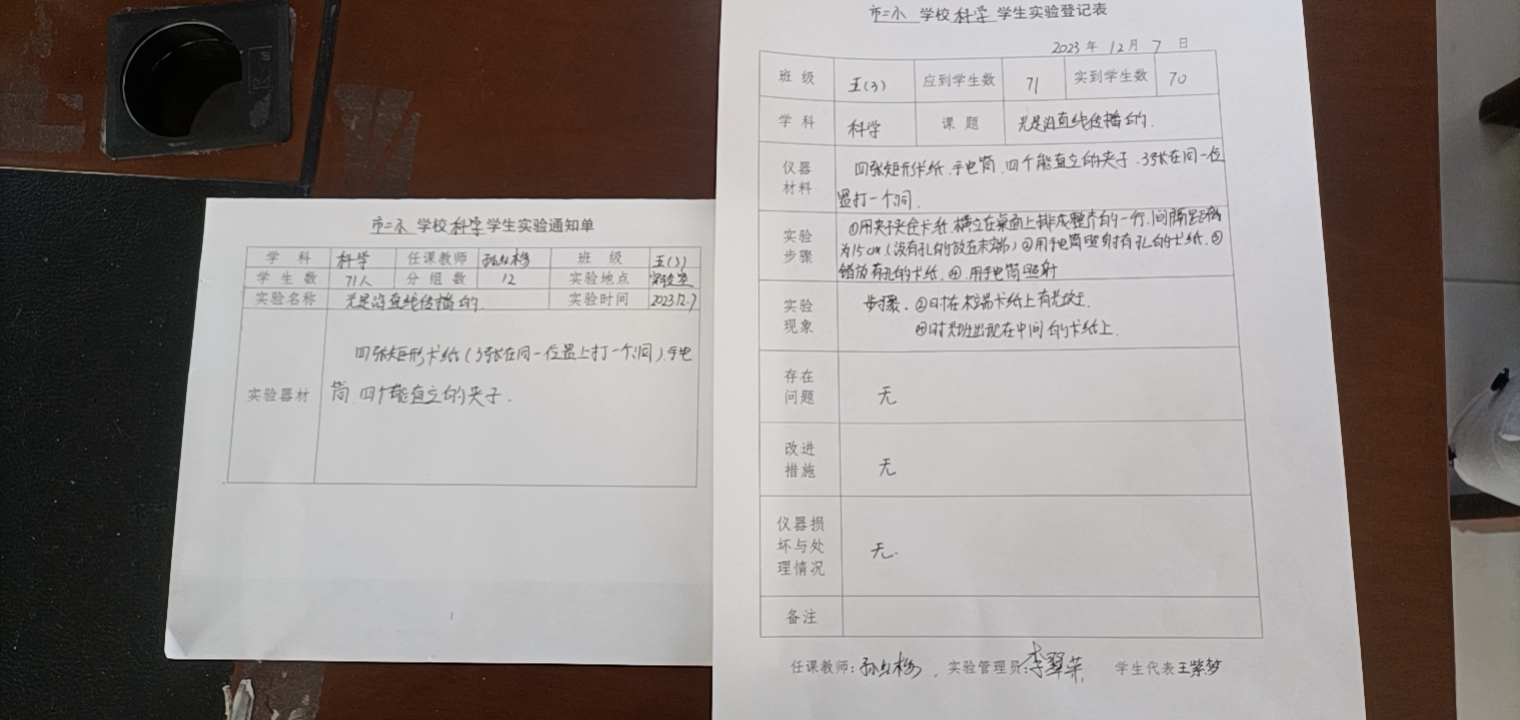 市二小 学校 科学 学生实验通知单
学 科 科学 任课教师 班 级 五(3)
学 生 数 71人 分 组 数 12 实验地点 实验室
实验名称 光是沿直线传播的. 实验时间 2023.12.7
实验器材
四张矩形卡纸(3张在同一位置上打一个洞).手电
筒.四个能直立的夹子.
市二小 学校 科学 学生实验登记表
2023 年 12 月 7 日
班 级 五(3) 应到学生数 71 实到学生数 70
学 科 科学 课 题 光是沿直线传播的.
仪器
材料
四张矩形卡纸.手电筒.四个能直立的夹子.3张在同一位
置打一个洞.
实验
步骤
①用夹子夹住卡纸.横立在桌面上排成整齐的一行.间隔距离
为15cm(没有孔的放在末端)②用手电筒照射有孔的卡纸.③
错放有孔的卡纸.④.用手电筒照射
实验
现象
步骤.②时在末端卡纸上有光斑.
④时光斑出现在中间的卡纸上.
存在
问题
无
改进
措施
无
仪器损
坏与处
理情况
无.
备注
任课教师: 实验管理员:李翠荣 学生代表 王紫梦